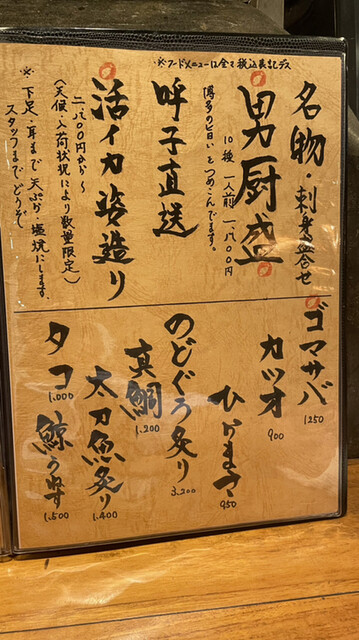 ※フードメニューは全て税込表記デス
名物・刺身盛合せ
男厨盛
10種 一人前 一、八〇〇円
博多の旨いをつめこんでます。
呼子直送
活イカ姿造り
二、八〇〇円から〜
(天候・入荷状況により数量限定)
※下足・耳まで天ぷら・塩焼にします。
スタッフまでどうぞ
ゴマサバ
1250
カツオ
900
ひらまさ
950
のどぐろ炙り
3,200
真鯛
1,200
太刀魚炙り
1,400
タコ
1,000
鯨うねす
1,500